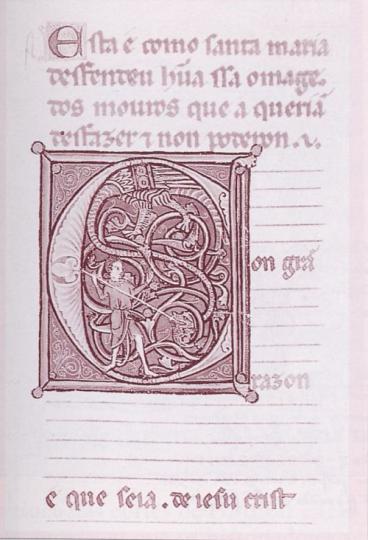 Esta é como santa maria
desfendeu hũa ssa omage.
dos mouros que a queriã
desfazer ⁊ non poderon. v.
Con grã
razon
e que seia . de iesu crist